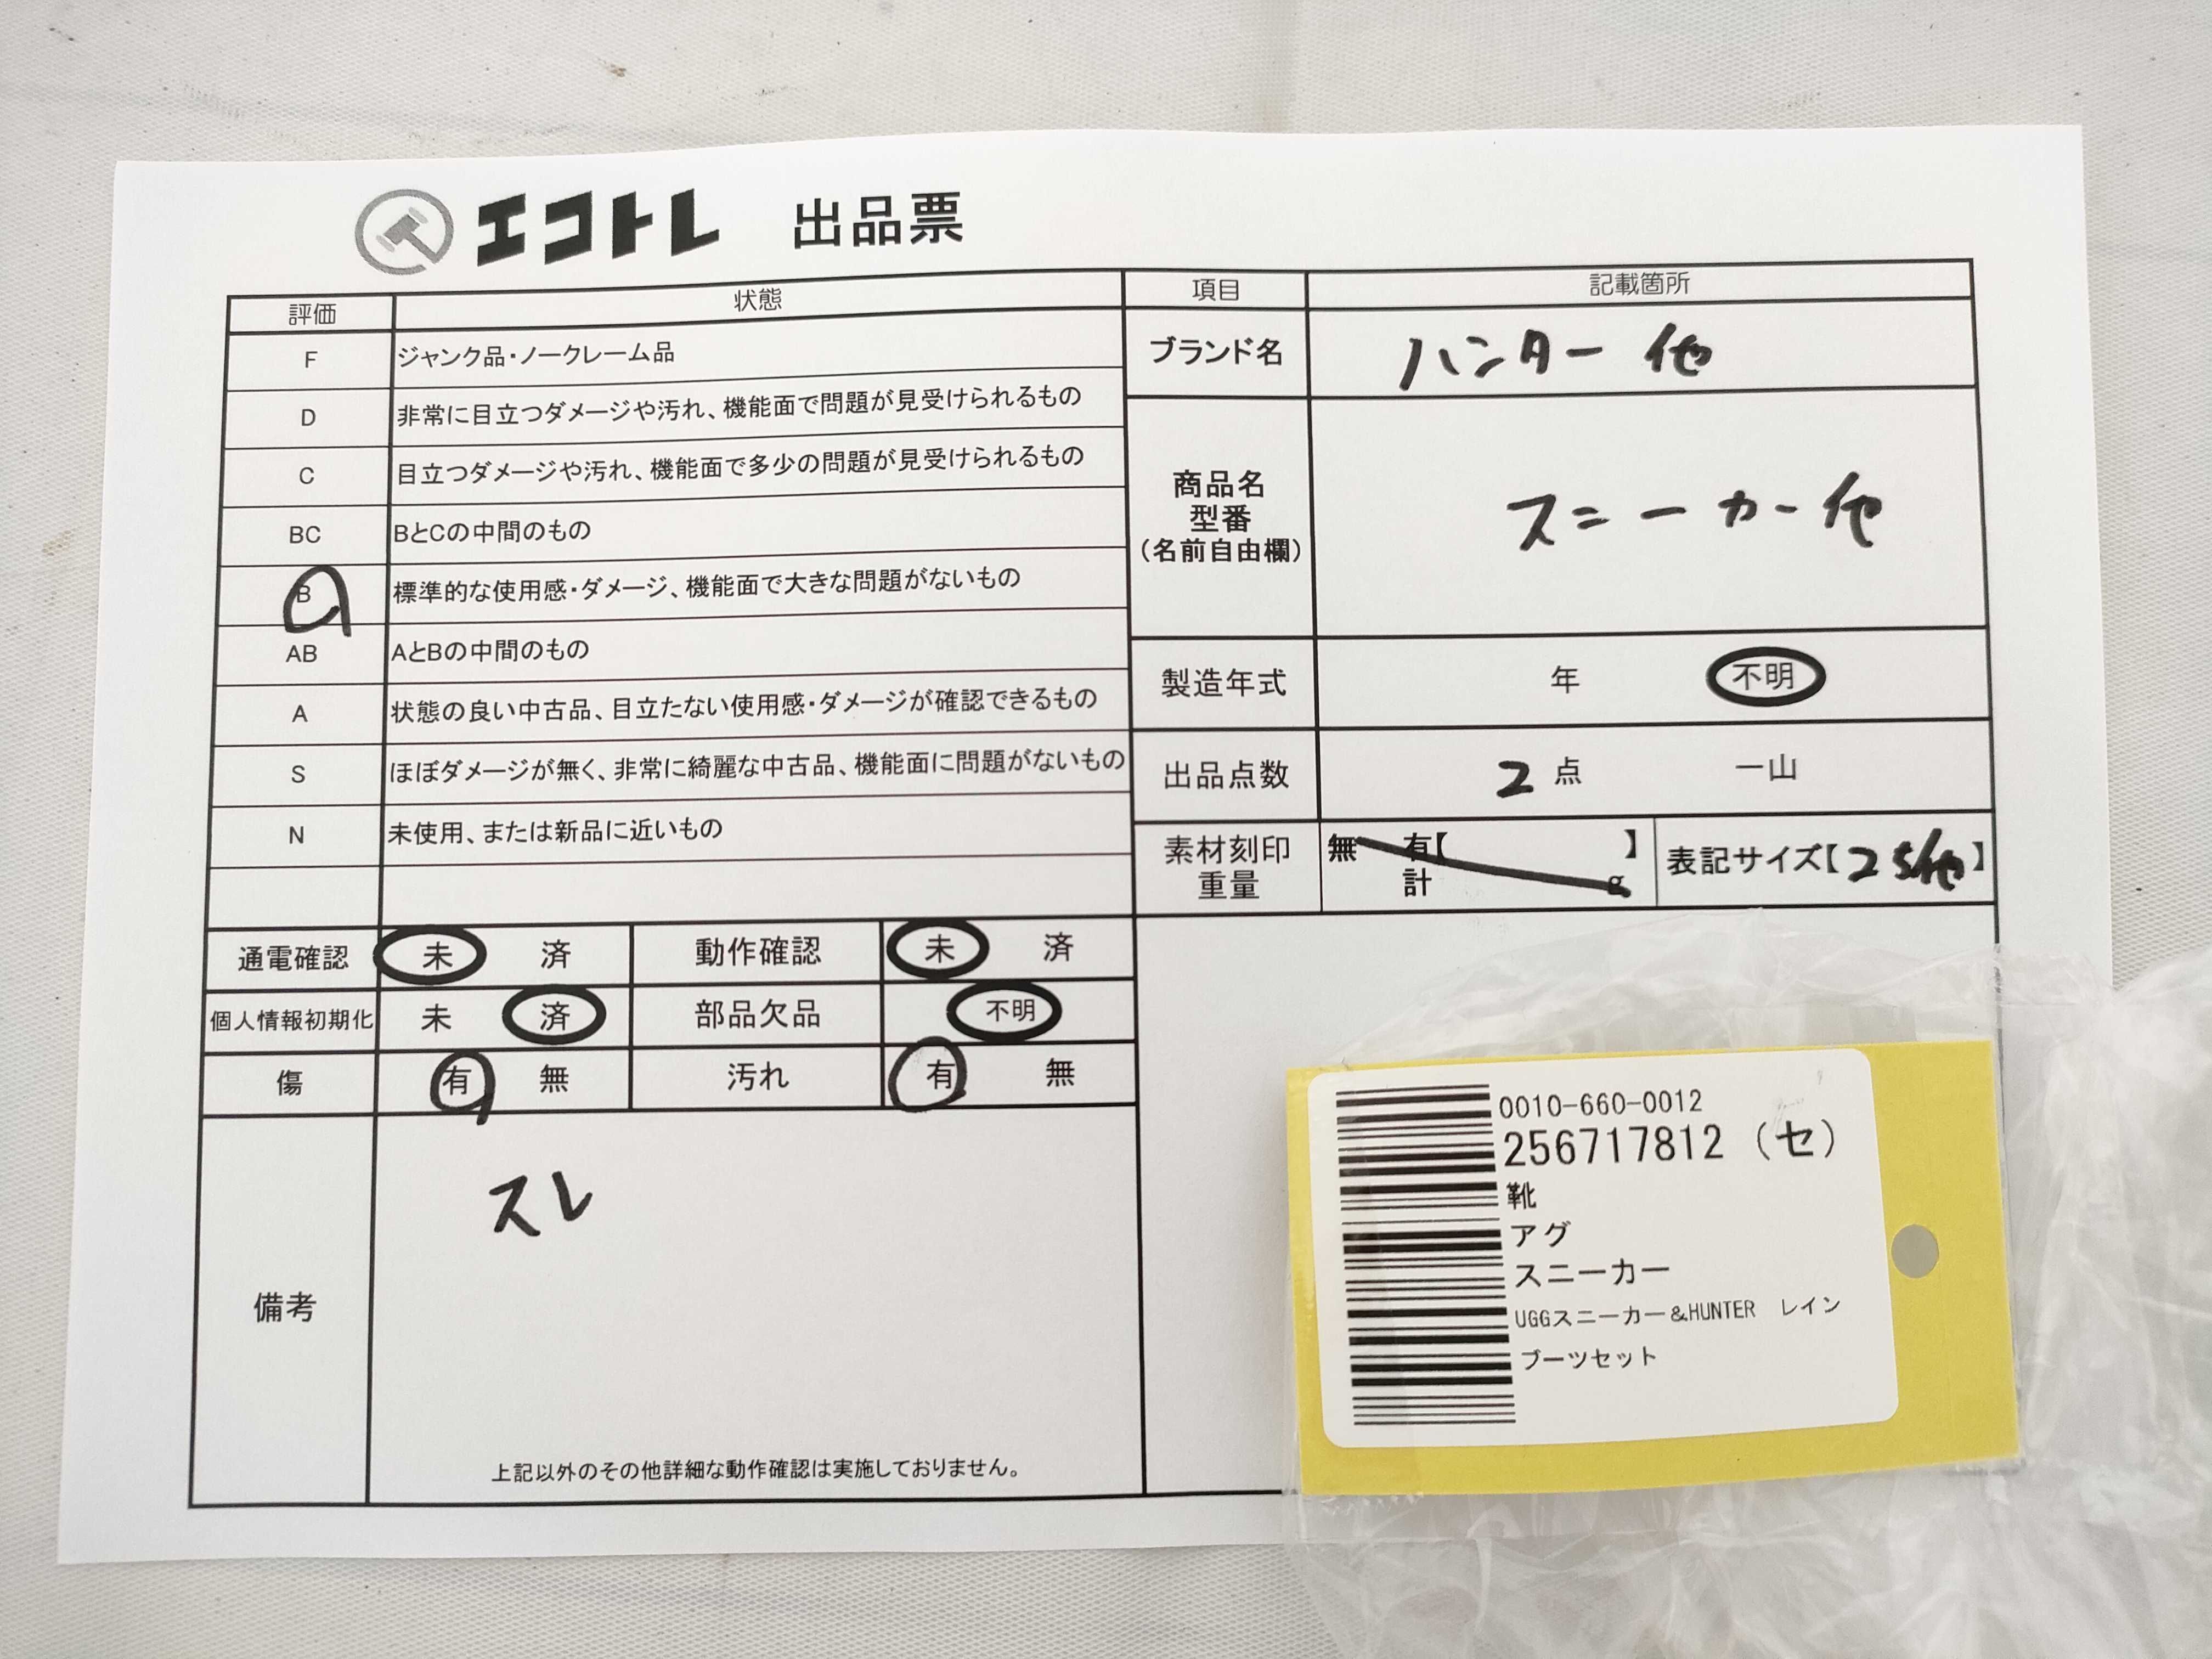 エコトレ 出品票
評価 状態
F ジャンク品・ノークレーム品
D 非常に目立つダメージや汚れ、機能面で問題が見受けられるもの
C 目立つダメージや汚れ、機能面で多少の問題が見受けられるもの
BC BとCの中間のもの
B 標準的な使用感・ダメージ、機能面で大きな問題がないもの
AB AとBの中間のもの
A 状態の良い中古品、目立たない使用感・ダメージが確認できるもの
S ほぼダメージが無く、非常に綺麗な中古品、機能面に問題がないもの
N 未使用、または新品に近いもの
項目 記載箇所
ブランド名 ハンター 他
商品名
型番
(名前自由欄)
スニーカー他
製造年式 年 不明
出品点数 2 点 一山
素材刻印 無 有【 】
重量 計 g
表記サイズ【25/他】
通電確認 未 済 動作確認 未 済
個人情報初期化 未 済 部品欠品 不明
傷 有 無 汚れ 有 無
備考
スレ
上記以外のその他詳細な動作確認は実施しておりません。
0010-660-0012
256717812（セ）
靴
アグ
スニーカー
UGGスニーカー＆HUNTER レイン
ブーツセット